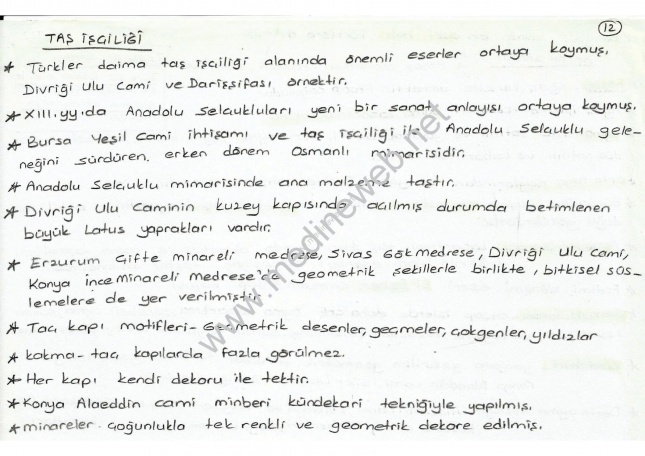 12
TAŞ İŞÇİLİĞİ
* Türkler daima taş işçiliği alanında önemli eserler ortaya koymuş,
Divriği Ulu Cami ve Darişsifası örnektir.
* XIII.yy.da Anadolu Selçukluları yeni bir sanat anlayışı ortaya koymuş.
* Bursa Yeşil Cami ihtişamı ve taş işçiliği ile Anadolu Selçuklu gele-
neğini sürdüren erken dönem Osmanlı mimarisidir.
* Anadolu Selçuklu mimarisinde ana malzeme taştır.
* Divriği Ulu Caminin kuzey kapısında açılmış durumda betimlenen
büyük Latus yaprakları vardır.
* Erzurum Çifte minareli medrese, Sivas Gök medrese, Divriği Ulu Cami,
Konya İnce Minareli medrese'de geometrik şekillerle birlikte, bitkisel süs-
lemelere de yer verilmiştir.
* Taç kapı motifleri- Geometrik desenler, geçmeler, çokgenler, yıldızlar
* kakma- taç kapılarda fazla görülmez.
* Her kapı kendi dekoru ile tektir.
* Konya Alaeddin cami minberi kündekari tekniğiyle yapılmış.
* minareler çoğunlukla tek renkli ve geometrik dekore edilmiş.
www.medineweb.net